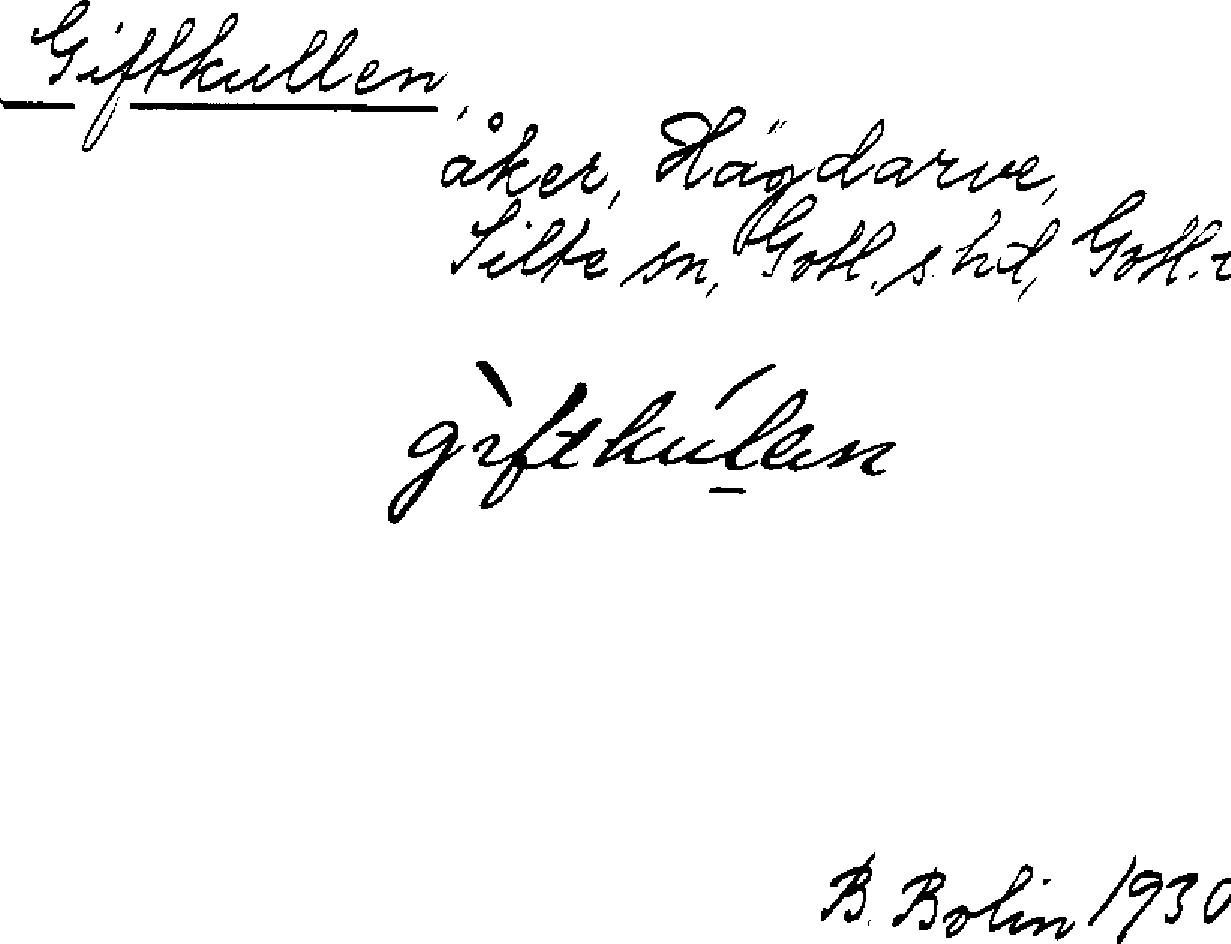 Giftkullen,
åker, Hägdarve,
Silte sn, Gotl. s. hd, Gotl.
gìftkúl̲en
B. Bolin 1930